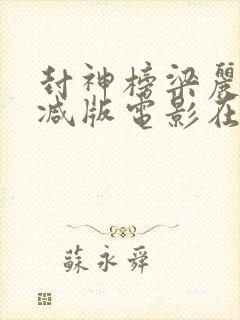 封神榜梁麗
減版電影在
蘇永舜